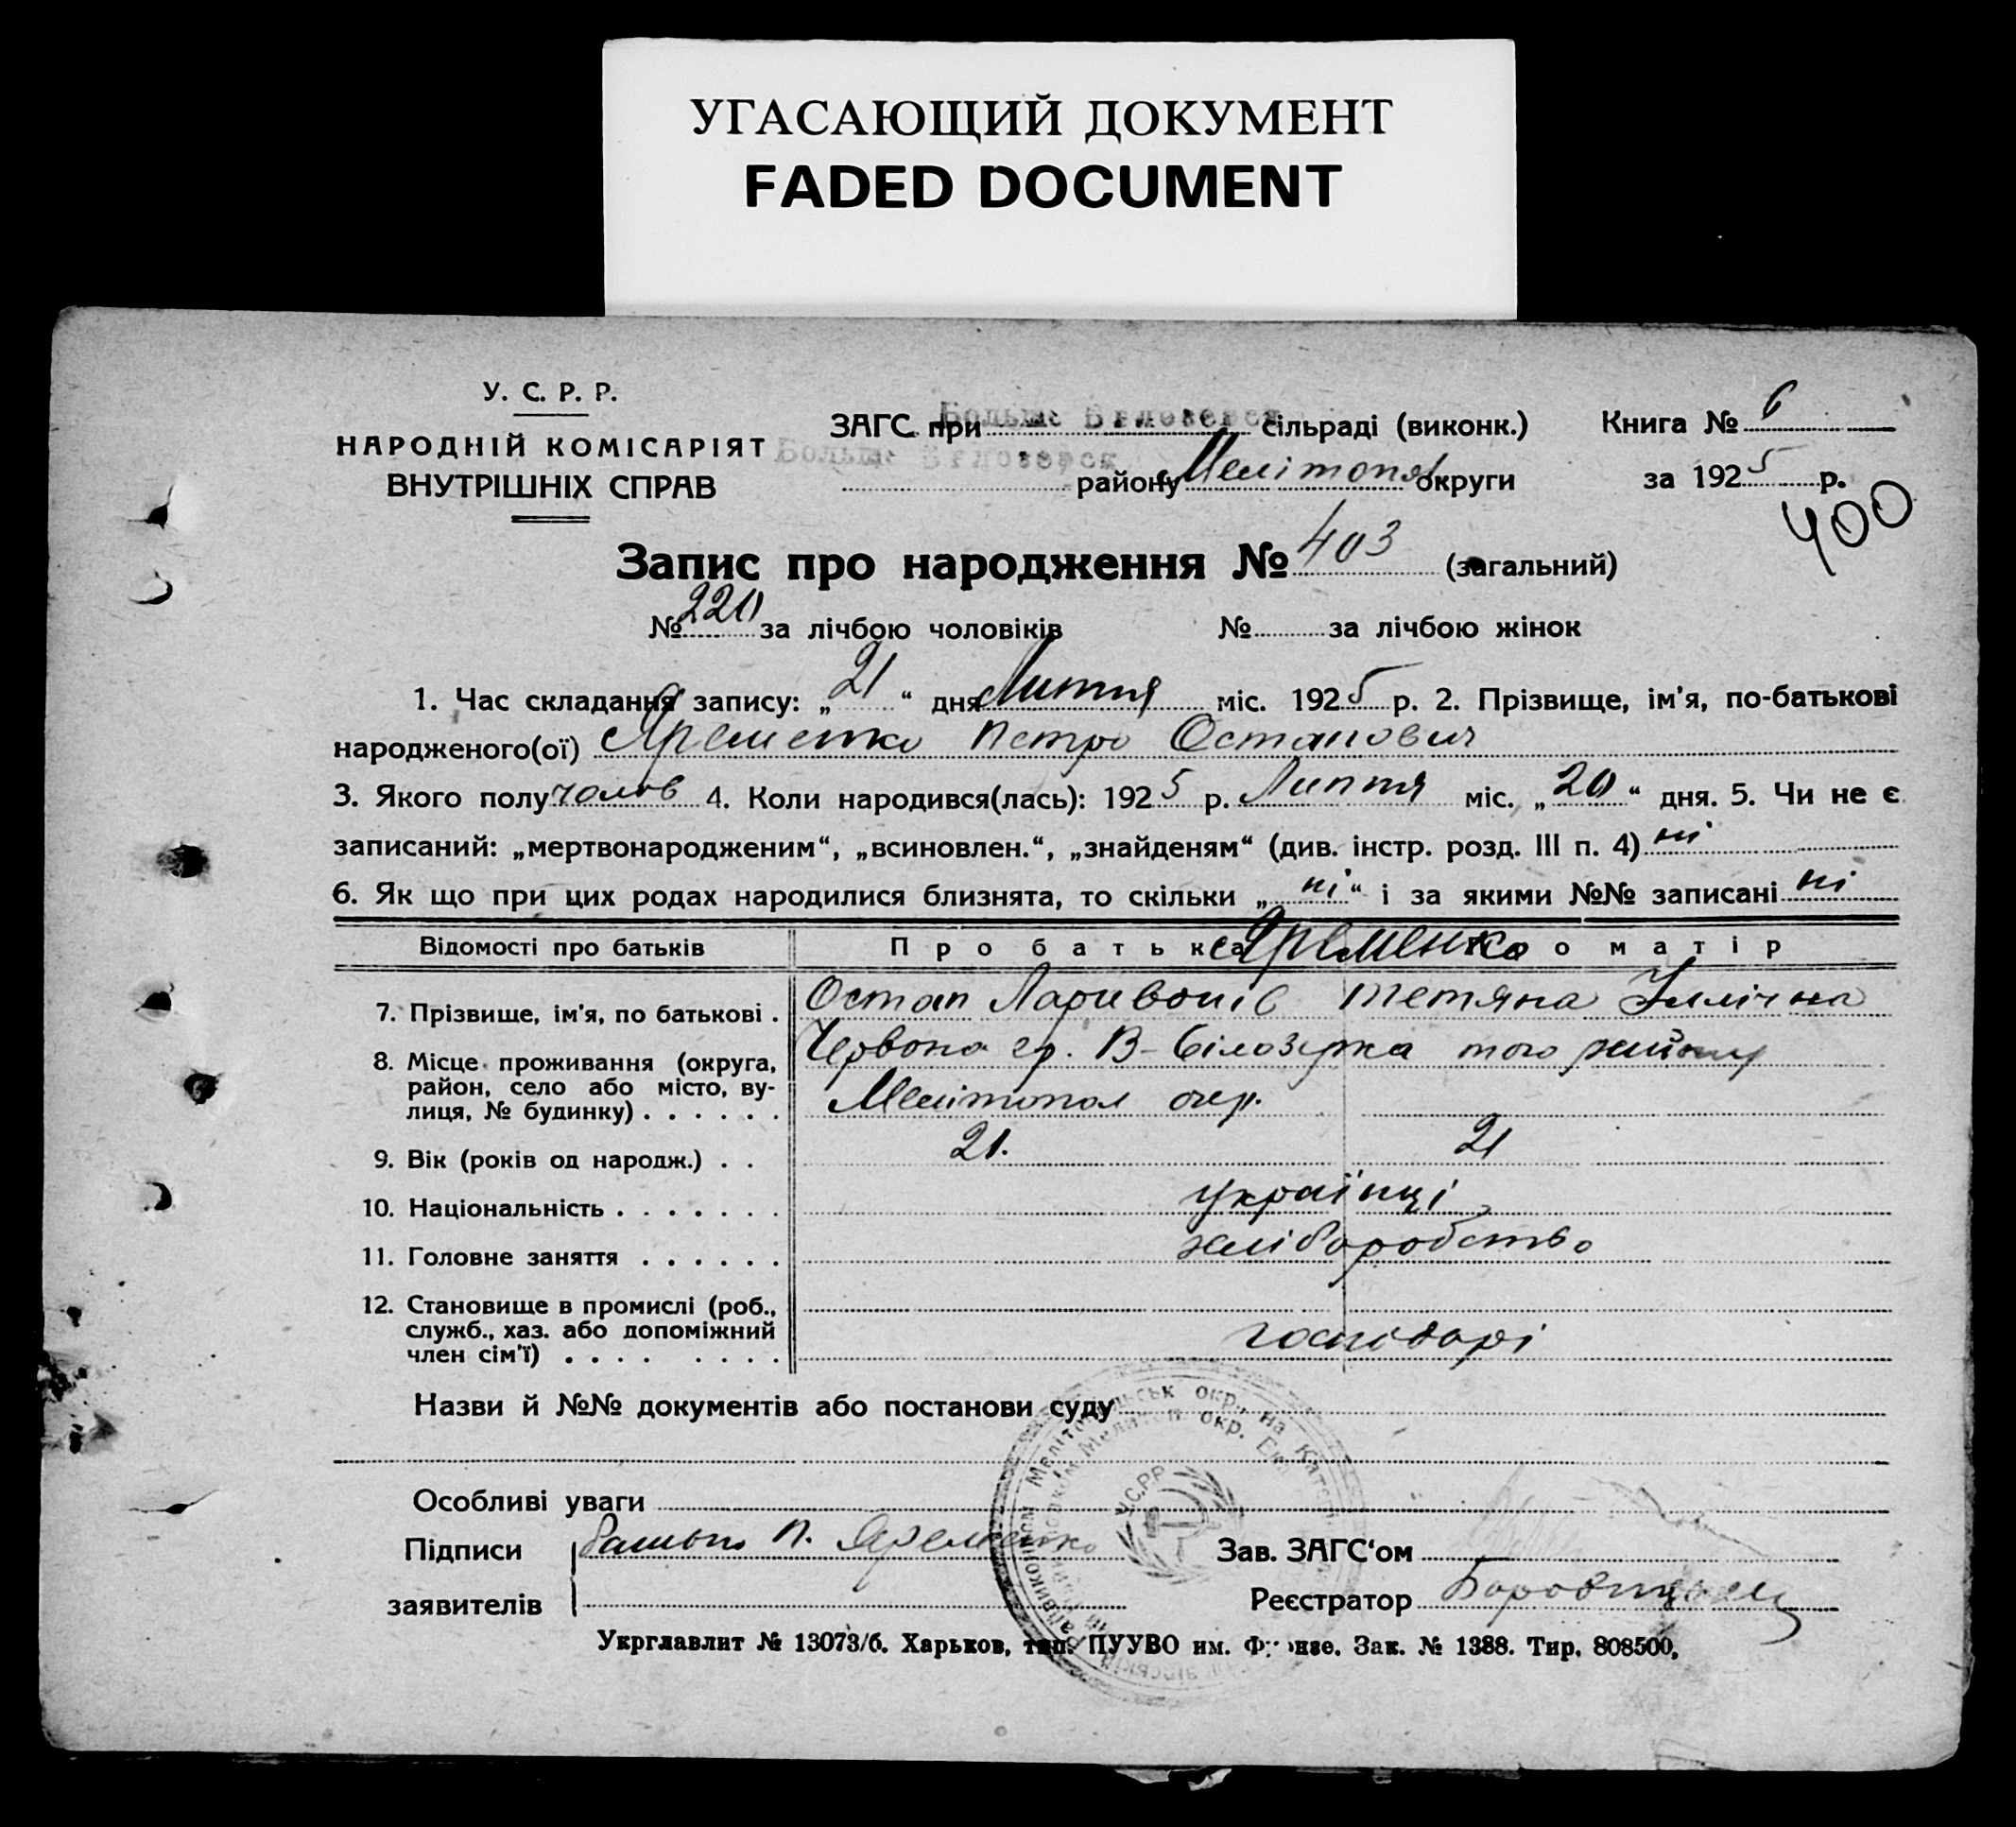 УГАСАЮЩИЙ ДОКУМЕНТ
FADED DOCUMENT
У. С. Р. Р.
НАРОДНІЙ КОМІСАРІЯТ
ВНУТРІШНІХ СПРАВ
ЗАГС при сільраді (виконк.)
району Мелітопол округи
Книга № 6
за 1925 р.
400
Запис про народження № 403 (загальний)
№ 220 за лічбою чоловіків № за лічбою жінок
1. Час складання запису: „ 21 “ дня міс. 1925 р. 2. Прізвище, ім'я, по-батькові
народженого(ої) Яременко Петро Остапович
3. Якого полу чолов 4. Коли народився(лась): 1925 р. міс. „ 20 “ дня. 5. Чи не є
записаний: „мертвонародженим“, „всиновлен.“, „знайденям“ (див. інстр. розд. III п. 4) ні
6. Як що при цих родах народилися близнята, то скільки „ ні “ і за якими №№ записані ні
Відомості про батьків Про батька Яременко Про матір
7. Прізвище, ім'я, по батькові . Остап Ларивонів Тетяна Іллічна
8. Місце проживання (округа, Червона В-Білозірка того району
район, село або місто, ву-
лиця, № будинку) . . . . . . Мелітопол окр.
9. Вік (років од народж.) . . 21. 21
10. Національність . . . . . . . українці
11. Головне заняття . . . . . . хліборобство
12. Становище в промислі (роб.,
служб., хаз. або допоміжний
член сім'ї) . . . . . . . . господарі
Назви й №№ документів або постанови суду
Особливі уваги
Підписи Яременко
заявителів
Зав. ЗАГС'ом
Реєстратор
У.С.Р.Р.
Укрглавлит № 13073/б. Харьков, тип. ПУУВО им. Фрунзе. Зак. № 1388. Тир. 808500,